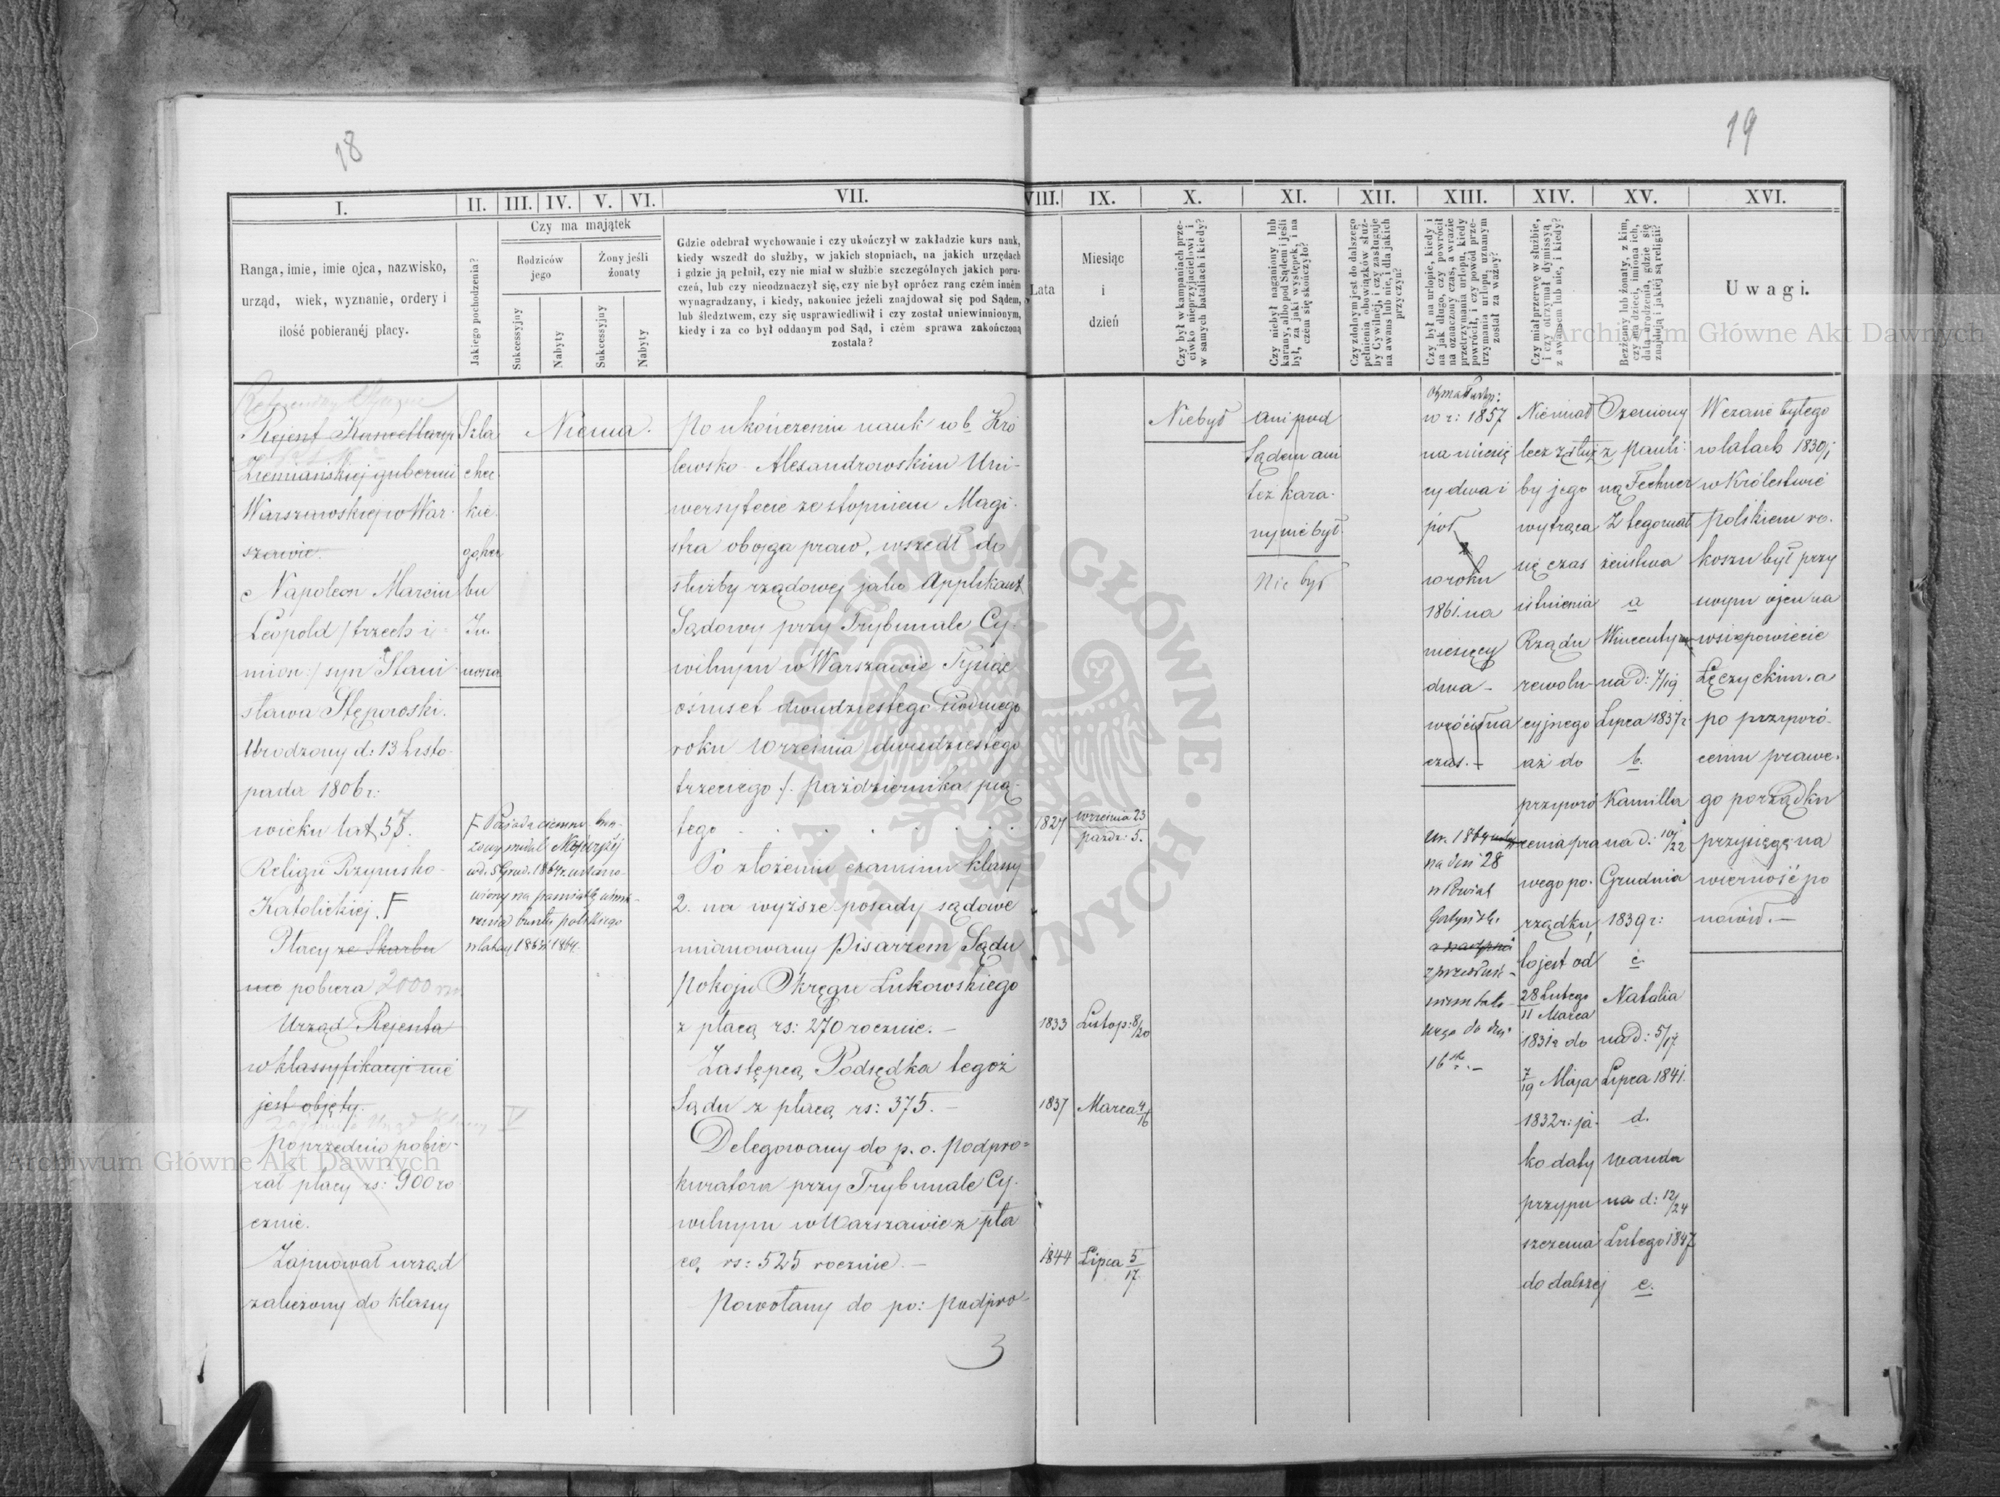 18
19
I.
Ranga, imie, imie ojca, nazwisko,
urząd, wiek, wyznanie, ordery i
ilość pobieranéj płacy.
II.
Jakiego pochodzenia?
III. IV. V. VI.
Czy ma majątek
Rodziców
jego
Żony jeśli
żonaty
Sukcessyjny
Nabyty
Sukcessyjny
Nabyty
VII.
Gdzie odebrał wychowanie i czy ukończył w zakładzie kurs nauk,
kiedy wszedł do służby, w jakich stopniach, na jakich urzędach
i gdzie ją pełnił, czy nie miał w służbie szczególnych jakich poru-
czeń, lub czy nieodznaczył się, czy nie był oprócz rang czém inném
wynagradzany, i kiedy, nakoniec jeżeli znajdował się pod Sądem,
lub śledztwem, czy się usprawiedliwił i czy został uniewinnionym,
kiedy i za co był oddanym pod Sąd, i czém sprawa zakończoną
została?
VIII.
Lata
IX.
Miesiąc
i
dzień
X.
Czy był w kampaniach prze-
ciwko nieprzyjacielowi i
w samych batalijach i kiedy?
XI.
Czy niebył naganiony lub
karany, albo pod Sądem i jeśli
był, za jaki występek, i na
czém się skończyło?
XII.
Czy zdolnym jest do dalszego
pełnienia obowiązków służ-
by Cywilnéj, i czy zasługuje
na awans lub nie, i dla jakich
przyczyn?
XIII.
Czy był na urlopie, kiedy i
na jak długo, czy powrócił
na oznaczony czas, a w razie
przetrzymania urlopu, kiedy
powrócił, i czy powód prze-
trzymania urlopu, uznanym
został za ważny?
XIV.
Czy miał przerwę w służbie,
i czy otrzymał dymissyą
z awansem lub nie, i kiedy?
XV.
Bezżenny lub żonaty, z kim,
czy ma dzieci, imiona ich,
data urodzenia, gdzie się
znajdują i jakiéj są religii?
XVI.
Uwagi.
Rejent Kancellaryi
Ziemiańskiej gubernii
Warszawskiej w War-
szawie.
Napoleon Marcin
Leopold /trzech i-
mion:/ syn Stani-
sława Stępowski.
Urodzony d: 13 Listo-
pada 1806 r:
wieku lat 57.
Religii Rzymsko-
Katolickiej. F
Płacy ze Skarbu
nie pobiera 2000 rs.
Urząd Rejenta
w klassyfikacyi nie
jest objęty.
Poprzednio pobie-
rał płacy rs: 900 ro
cznie.
Zajmował urząd
zaliczony do klassy
Szla
chec-
kie-
go her
bu
Ju-
nosza
F Posiada ciemno bron-
zowy medal Najwyżej
ustano-
wiony na pamiątkę uśmie-
rzenia buntu polskiego
w latach 1863 i 1864.
V
Niema.
Po ukończeniu nauk w b. Kró
lewsko-Alexandrowskim Uni-
wersytecie ze stopniem Magi-
stra obojga praw, wszedł do
służby rządowej jako Applikant
Sądowy przy Trybunale Cy-
wilnym w Warszawie Tysiąc
ośmset dwudziestego siódmego
roku Września dwudziestego
trzeciego /. Października pią-
tego
Po złożeniu examinu klassy
2. na wyższe posady sądowe
mianowany Pisarzem Sądu
Pokoju Okręgu Łukowskiego
z płacą rs: 270 rocznie.-
Zastępcą Podsędka tegoż
Sądu z płacą rs: 375.-
Delegowany do p. o. Podpro-
kuratora przy Trybunale Cy-
wilnym w Warszawie z pła
cą rs: 525 rocznie.-
Powołany do po: Podpro-
3
1827 września 23
paźdz: 5.
1833 Listop: 8/20
1837 Marca 4/16
1844 Lipca 5/17
Niebył
ani pod
Sądem ani
też kara-
ny nie był.
Nie był
w r: 1857
na miesię
cy dwa i
pół
w roku
1861. na
miesięcy
dwa-
wrócił na
czas.-
na dni 28
16
Niemiał
lecz z służ
by jego
wytrąca
się czas
istnienia
Rządu
rewolu-
cyjnego
aż do
przywró
cenia pra
wego po-
rządku,
to jest od
28 Lutego
11 Marca
1831 r do
7/19 Maja
1832 r: ja-
ko daty
przypu
szczenia
do dalszej
Ożeniony
z Pauli-
ną Fechner
Z tego mał
żeństwa
a
Wincenty
na d: 7/19
Lipca 1837 r
b.
Kamilla
na d: 10/22
Grudnia
1839 r:
c.
Natalia
na d: 5/17
Lipca 1841.
d.
Wanda
na d: 12/24
Lutego 1847
e.
W czasie byłego
w latach 1830/1
w Królestwie
Polskiem ro-
koszu był przy
swym ojcu na
wsi w powiecie
Łęczyckim. a
po przywró-
ceniu prawe-
go porządku
przysięgę na
wierność po
nowił.-
ARCHIWUM GŁÓWNE AKT DAWNYCH
Archiwum Główne Akt Dawnych
Archiwum Główne Akt Dawnych